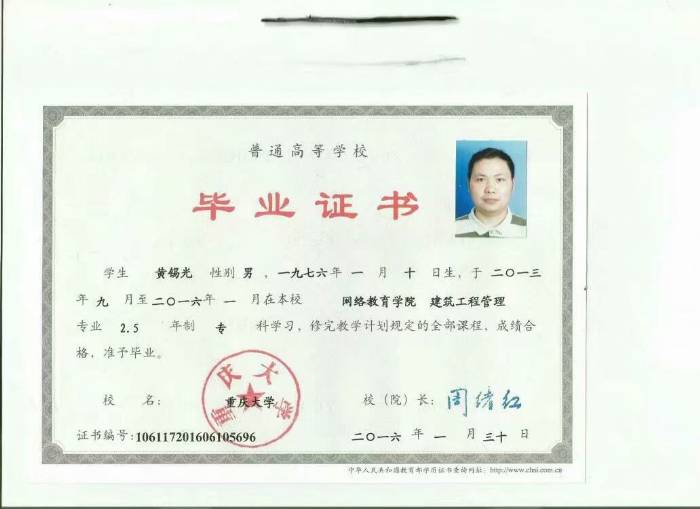 普通高等学校
毕业证书
学生 黄锡光 性别 男，一九七六年 一 月 十 日生，于 二〇一三
年 九 月至二〇一六年 一 月在本校 网络教育学院 建筑工程管理
专业 2.5 年制 专 科学习，修完教学计划规定的全部课程，成绩合
格，准予毕业。
校 名： 重庆大学 校（院）长：周绪红
重庆大学
证书编号：106117201606105696 二〇一六 年 一 月 三十 日
中华人民共和国教育部学历证书查询网址：http://www.chsi.com.cn